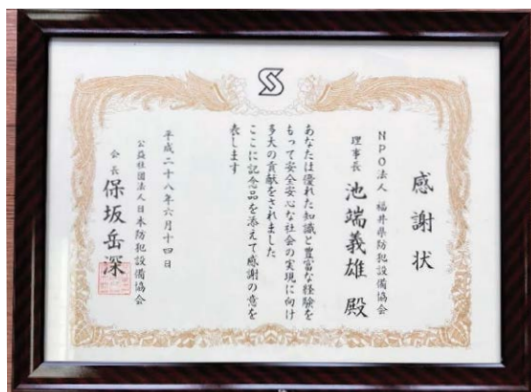 感謝状
NPO法人 福井県防犯設備協会
理事長 池端義雄 殿
あなたは優れた知識と豊富な経験を
もって安全安心な社会の実現に向け
多大の貢献をされました
ここに記念品を添えて感謝の意を
表します
平成二十八年六月十四日
公益社団法人日本防犯設備協会
会長 保坂岳深